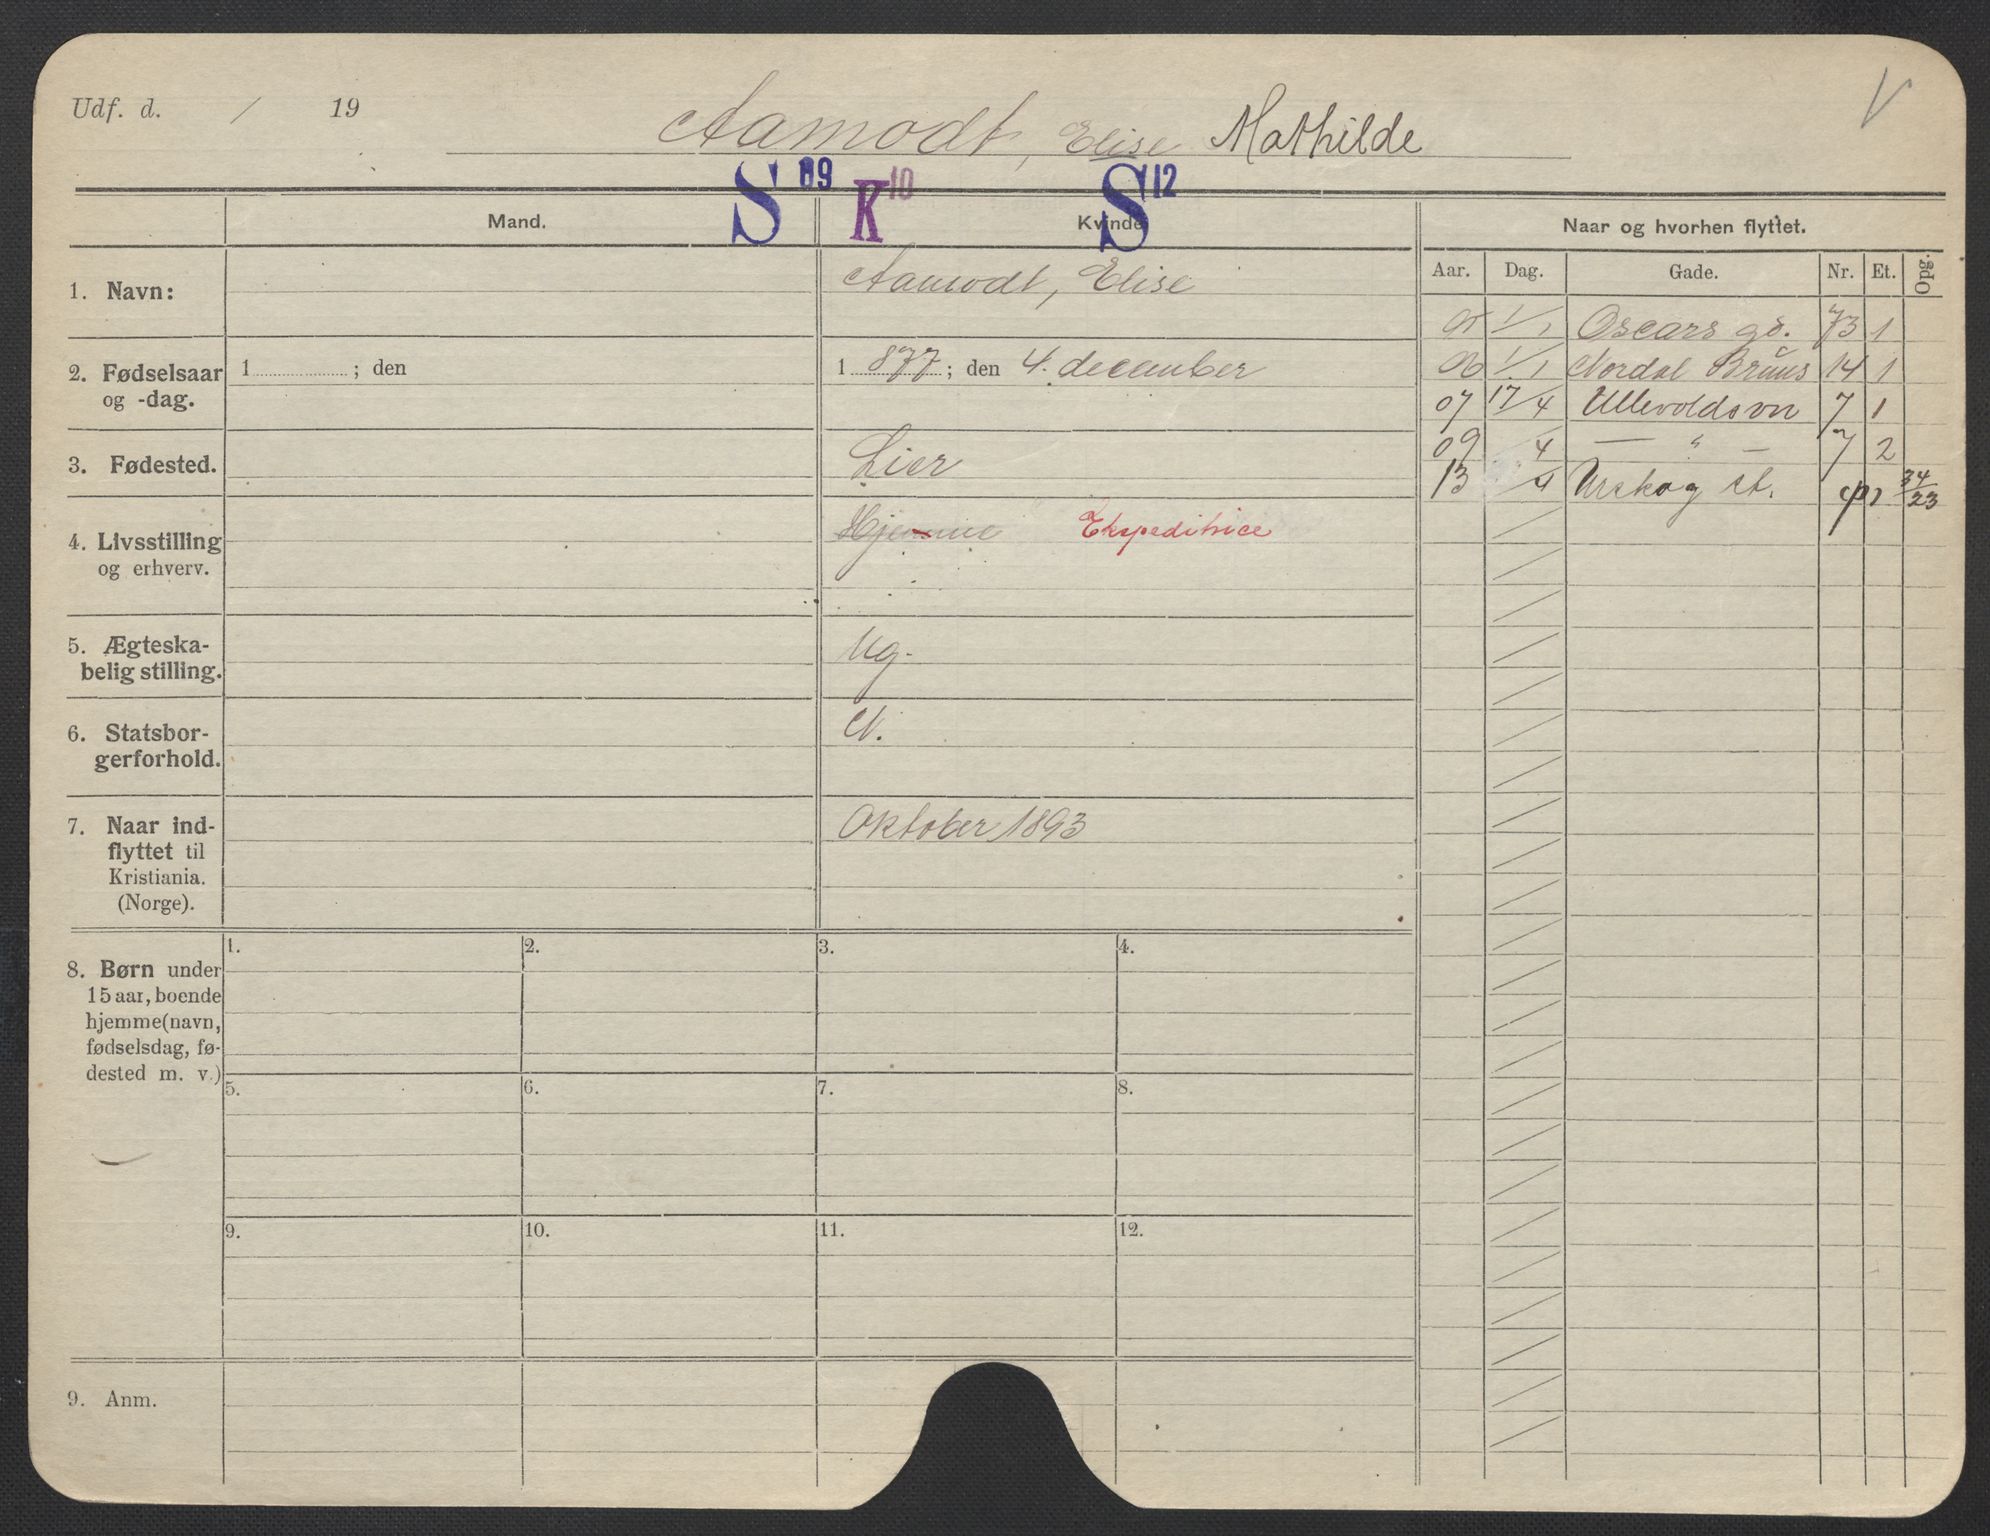 Udf. d. / 19
Aamodt, Elise Mathilde
V
S 09 K 10 S 12
Mand. Kvinde Naar og hvorhen flyttet.
Aar. Dag. Gade. Nr. Et. Opg.
1. Navn: Aamodt, Elise
2. Fødselsaar og -dag. 1 ; den 1 877 ; den 4. december
3. Fødested. Lier
4. Livsstilling og erhverv. Hjemme Ekspeditrice
5. Ægteskabelig stilling. Ug.
6. Statsborgerforhold. N.
7. Naar indflyttet til
Kristiania.
(Norge). Oktober 1893
05 1/1 Oscars gd. 73 1
06 1/1 Nordal Bruns 14 1
07 17/4 Ullevoldsvn 7 1
09 /4 — " — 7 2
13 /4 Urskog st. 34/23
8. Børn under
15 aar, boende
hjemme (navn,
fødselsdag, fødested m. v.)
1. 2. 3. 4.
5. 6. 7. 8.
9. 10. 11. 12.
9. Anm.